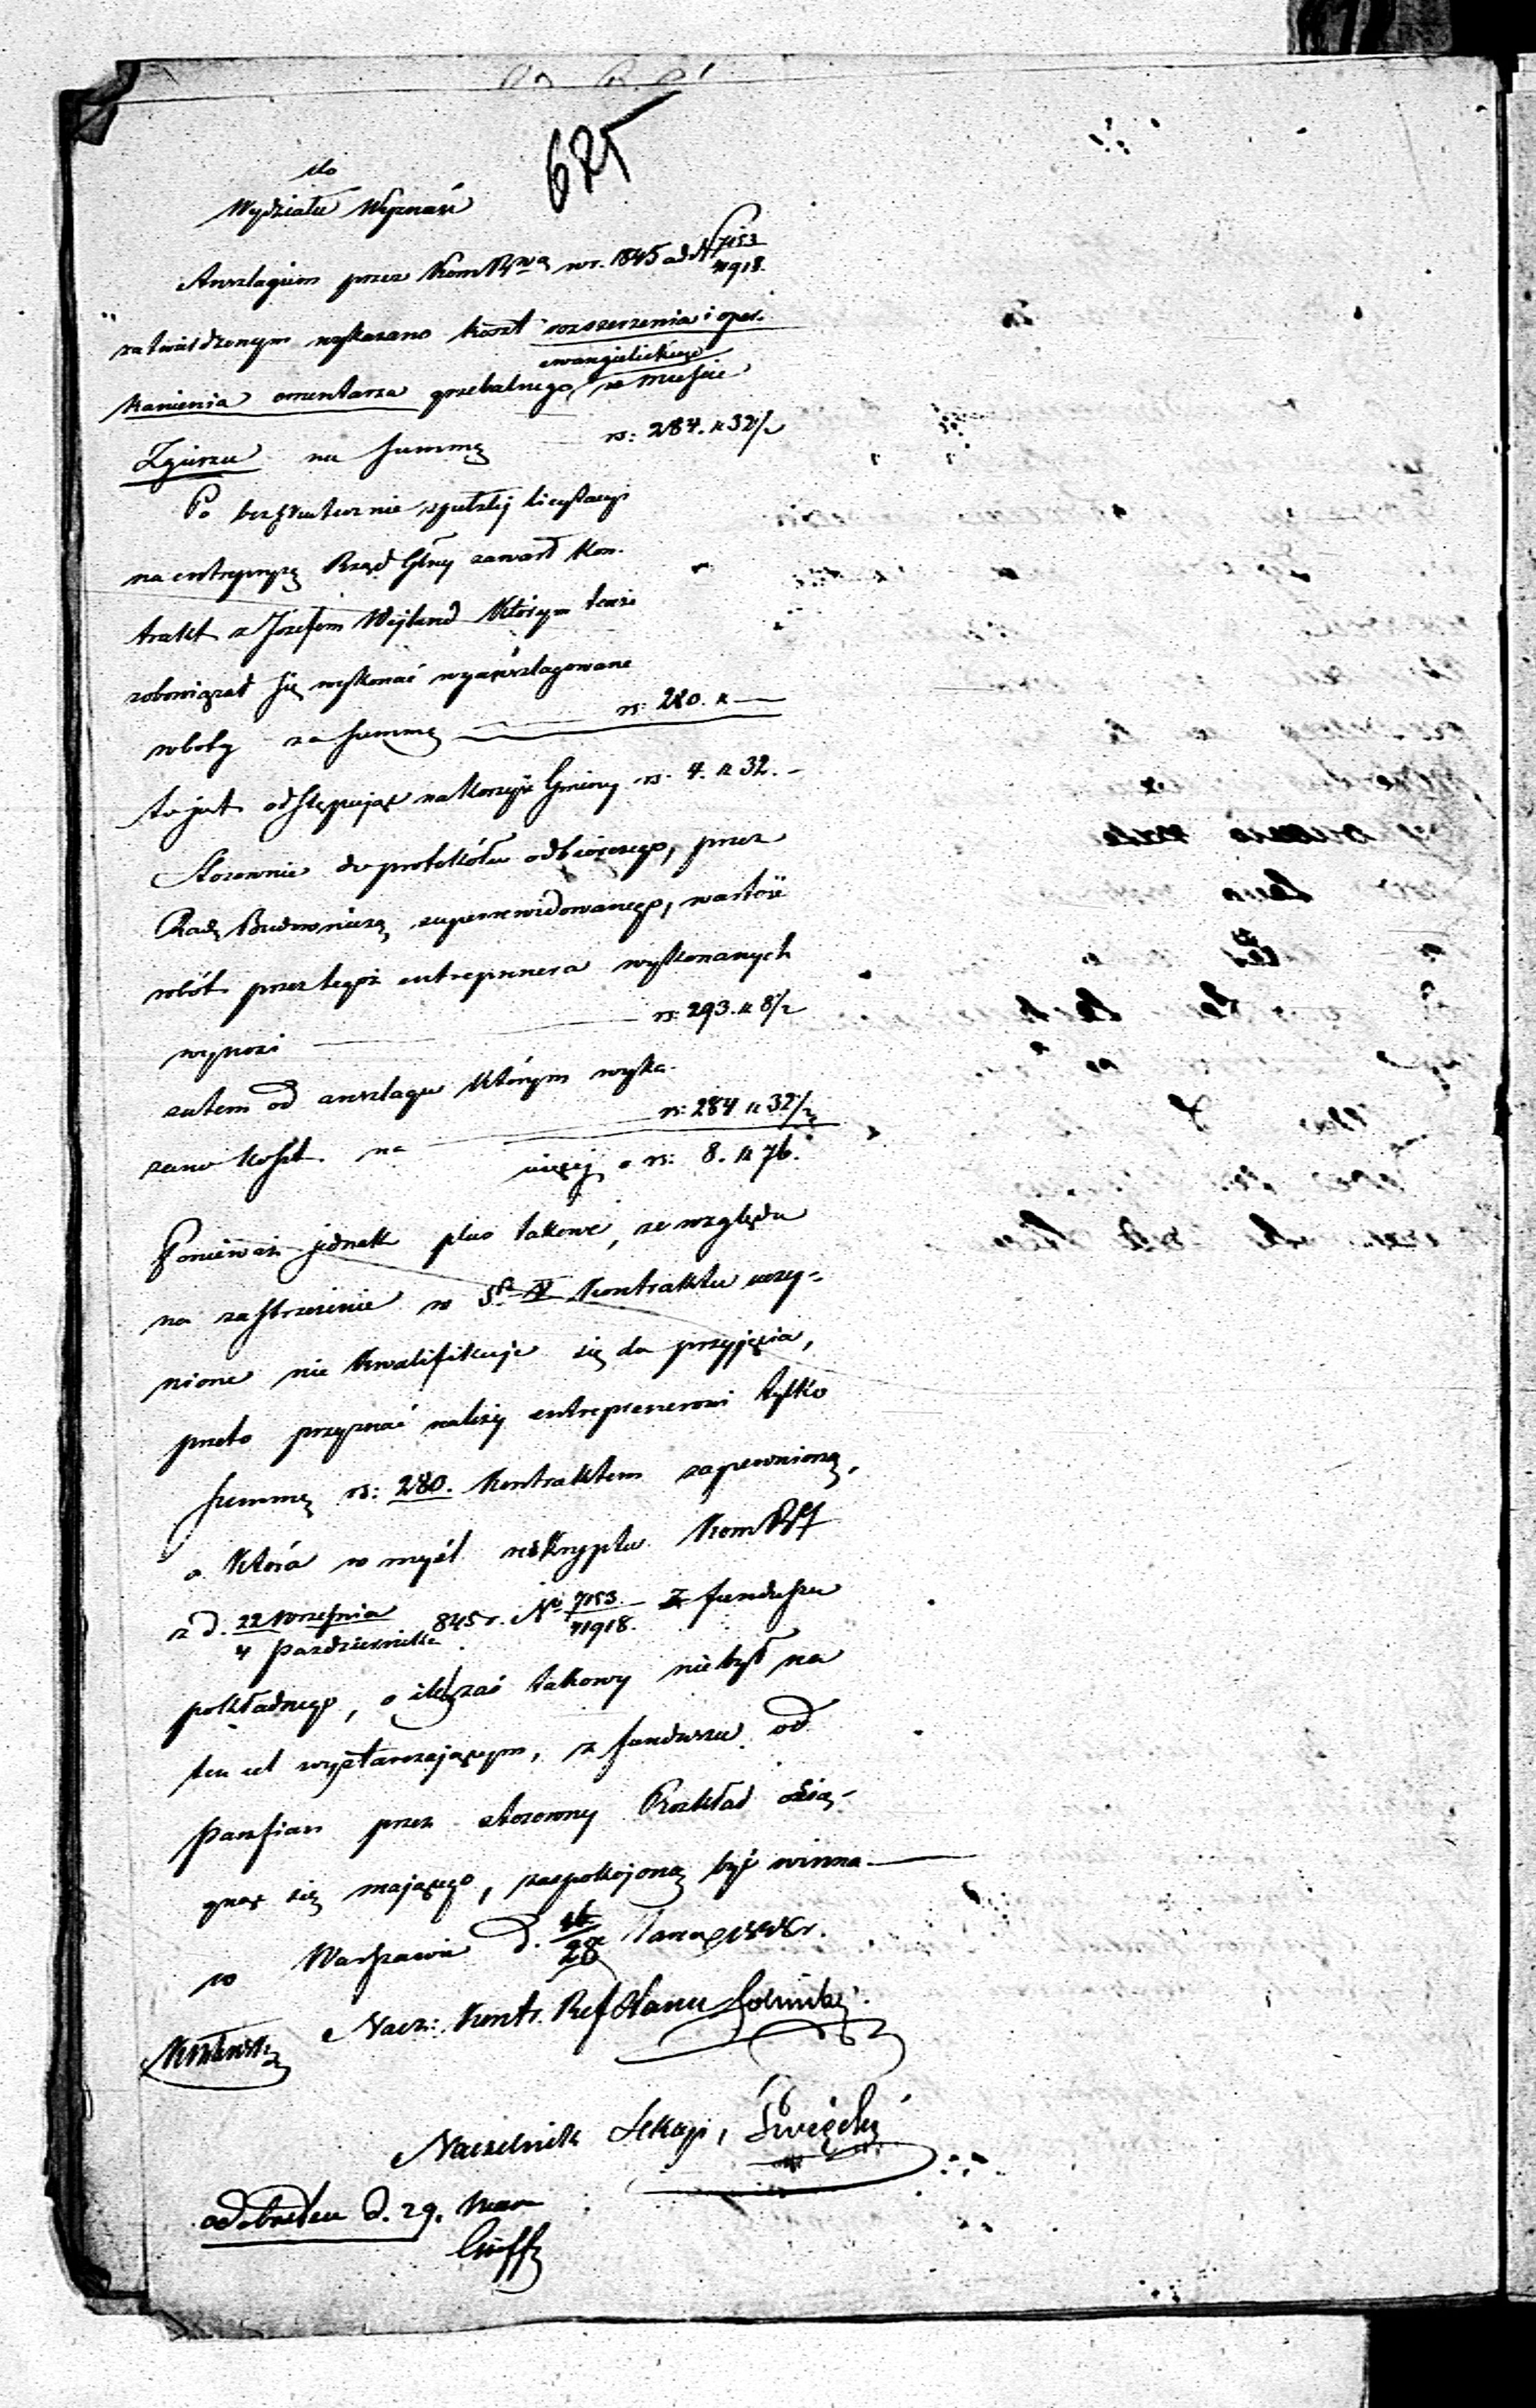 625
do
Wydziału Wyznań
Anszlagiem przez Kom Rwą w r. 1845 ad N 7153/71918.
zatwierdzonym wykazano koszt rozszerzenia i opar-
ewangelickiego
kanienia cmentarza grzebalnego w mieście
Zgierzu na summę rs: 284. k 32 1/2
Po bezskutecznie spełzłej licytacyi
na entrepryzę Rząd Głny zawarł kon-
trakt z Józefem Wejland którym tenże
zobowiązał się wykonać wyanszlagowane
roboty za summę rs: 280. k —
to jest odstępując na korzyść Gminy rs. 4. k 32. –
Stosownie do protokółu odbiorczego, przez
Radę Budowniczą superrewidowanego, wartość
robót przez tegoż entreprenera wykonanych
wynosi rs: 293. k 8 1/2
zatem od anszlagu którym wyka-
zano koszt na rs: 284 k 32 1/2
więcej o rs: 8. k 76.
Ponieważ jednak plus takowe, ze względu
na zastrzeżenie w §fie IV Kontraktu uczy-
nione nie kwalifikuje się do przyjęcia,
przeto przyznać należy entreprenerowi tylko
summę rs: 280. kontraktem zapewnioną,
a która w myśl reskryptu Kom
z d. 22 Września/4 Października 845 r. No 7153/71918. z funduszu
pokładnego, o ile zaś takowy niebył na
ten cel wystarczającym, z funduszu od
parafian przez stosowny Rozkład ścią-
gnąć się mającego, zaspokojoną być winna —
w Warszawie d. 16/28 Marca 1848 r.
Nacz: Kontr. Ref Stanu
Naczelnik Sekcyi, Święcki
odebrałem d. 29. Mar